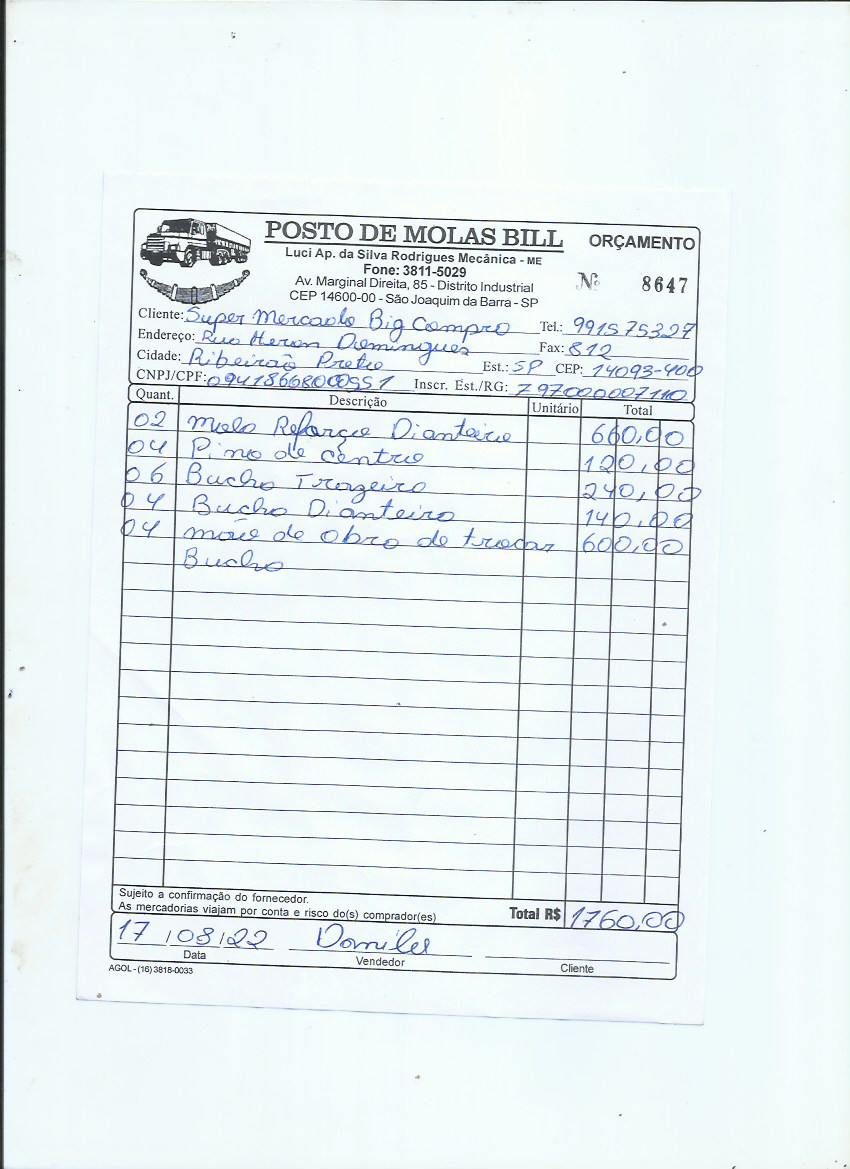 POSTO DE MOLAS BILL ORÇAMENTO
Luci Ap. da Silva Rodrigues Mecânica - ME
Fone: 3811-5029
Av. Marginal Direita, 85 - Distrito Industrial Nº 8647
CEP 14600-00 - São Joaquim da Barra - SP
Cliente: Super Mercado Big Compro Tel.: 991575327
Endereço: Rua Heron Domingues Fax: 812
Cidade: Ribeirão Preto Est.: SP CEP: 14093-400
CNPJ/CPF: 09418668000551 Inscr. Est./RG: 797000007110
Quant. Descrição Unitário Total
02 Mola Reforço Dianteiro 660,00
04 Pino de centro 120,00
06 Bucha Trazeiro 240,00
04 Bucha Dianteiro 140,00
04 mão de obra de trocar 600,00
Bucha
Sujeito a confirmação do fornecedor.
As mercadorias viajam por conta e risco do(s) comprador(es) Total R$ 1760,00
17/08/22
Data Vendedor Cliente
AGOL - (16) 3818-0033